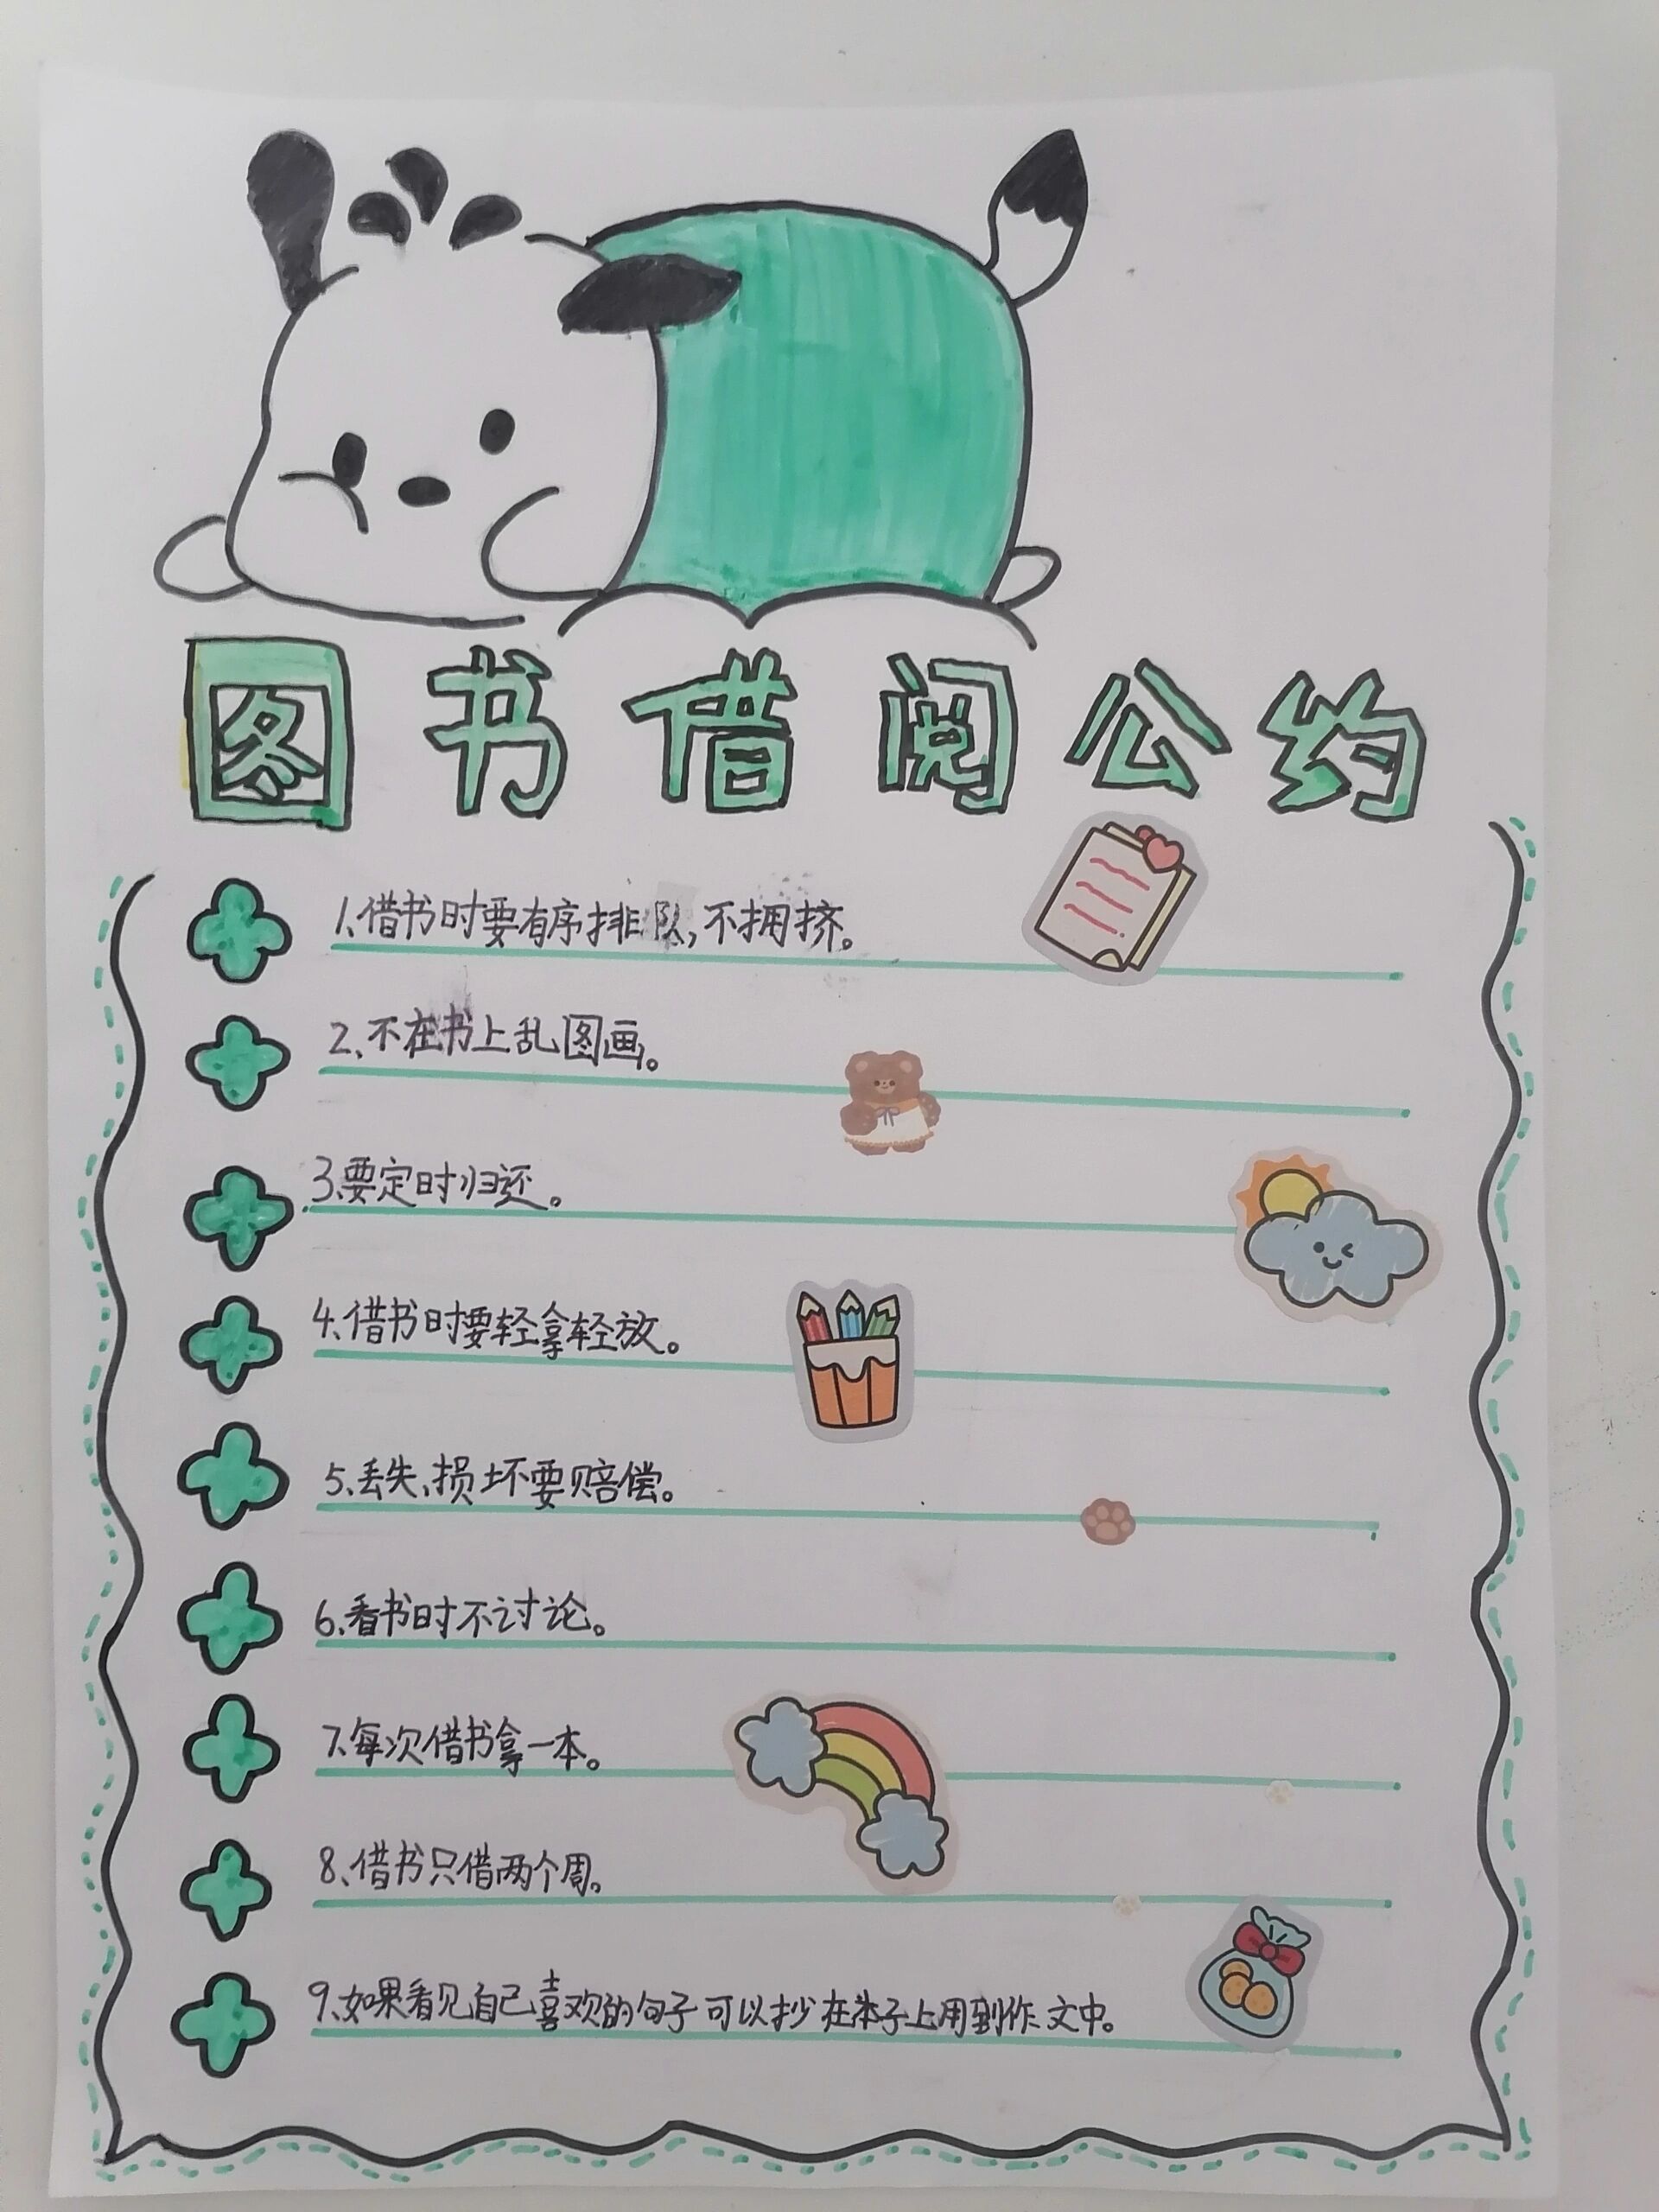 图书借阅公约
1、借书时要有序排队,不拥挤。
2、不在书上乱图画。
3、要定时归还。
4、借书时要轻拿轻放。
5、丢失、损坏要赔偿。
6、看书时不讨论。
7、每次借书拿一本。
8、借书只借两个周。
9、如果看见自己喜欢的句子可以抄在本子上用到作文中。